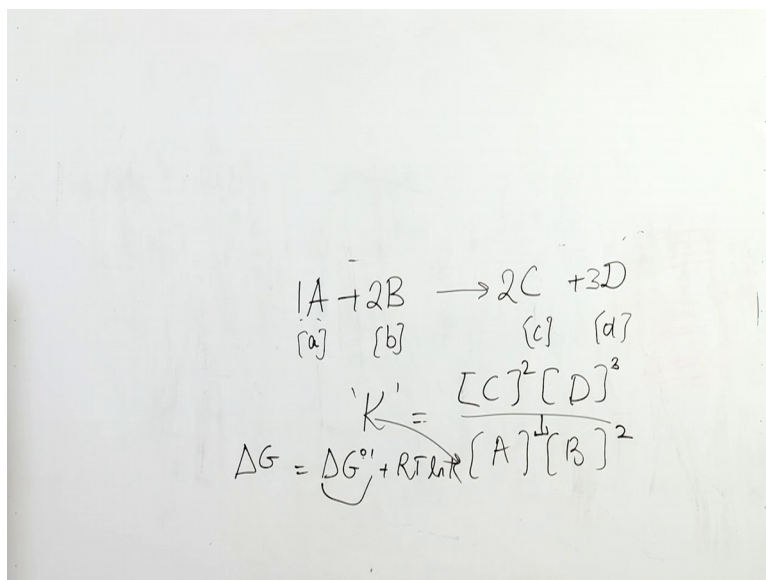 1A + 2B → 2C + 3D
[a] [b] [c] [d]
'K' = [C]² [D]³
[A]¹ [B]²
ΔG = ΔG°' + RT ln K